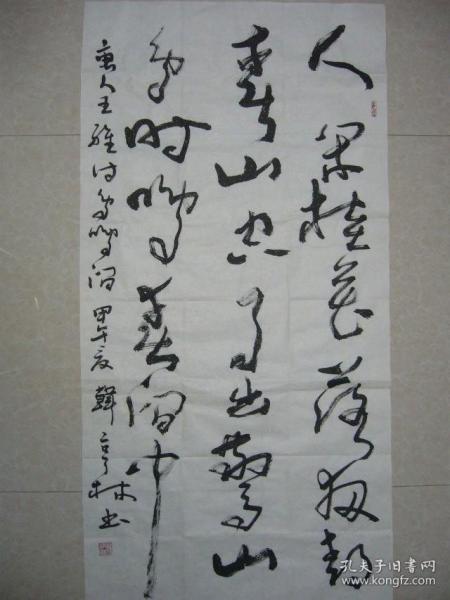 人闲桂花落夜静
春山空月出惊山
鸟时鸣春涧中
唐人王维诗鸟鸣涧 甲午夏 韩亨林书
孔夫子旧书网
www.kongfz.com